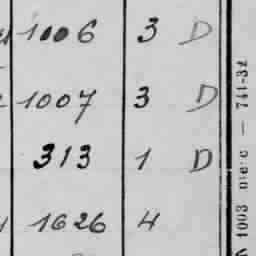 1006 3 D
1007 3 D
313 1 D
1626 4
1003 — 741-32